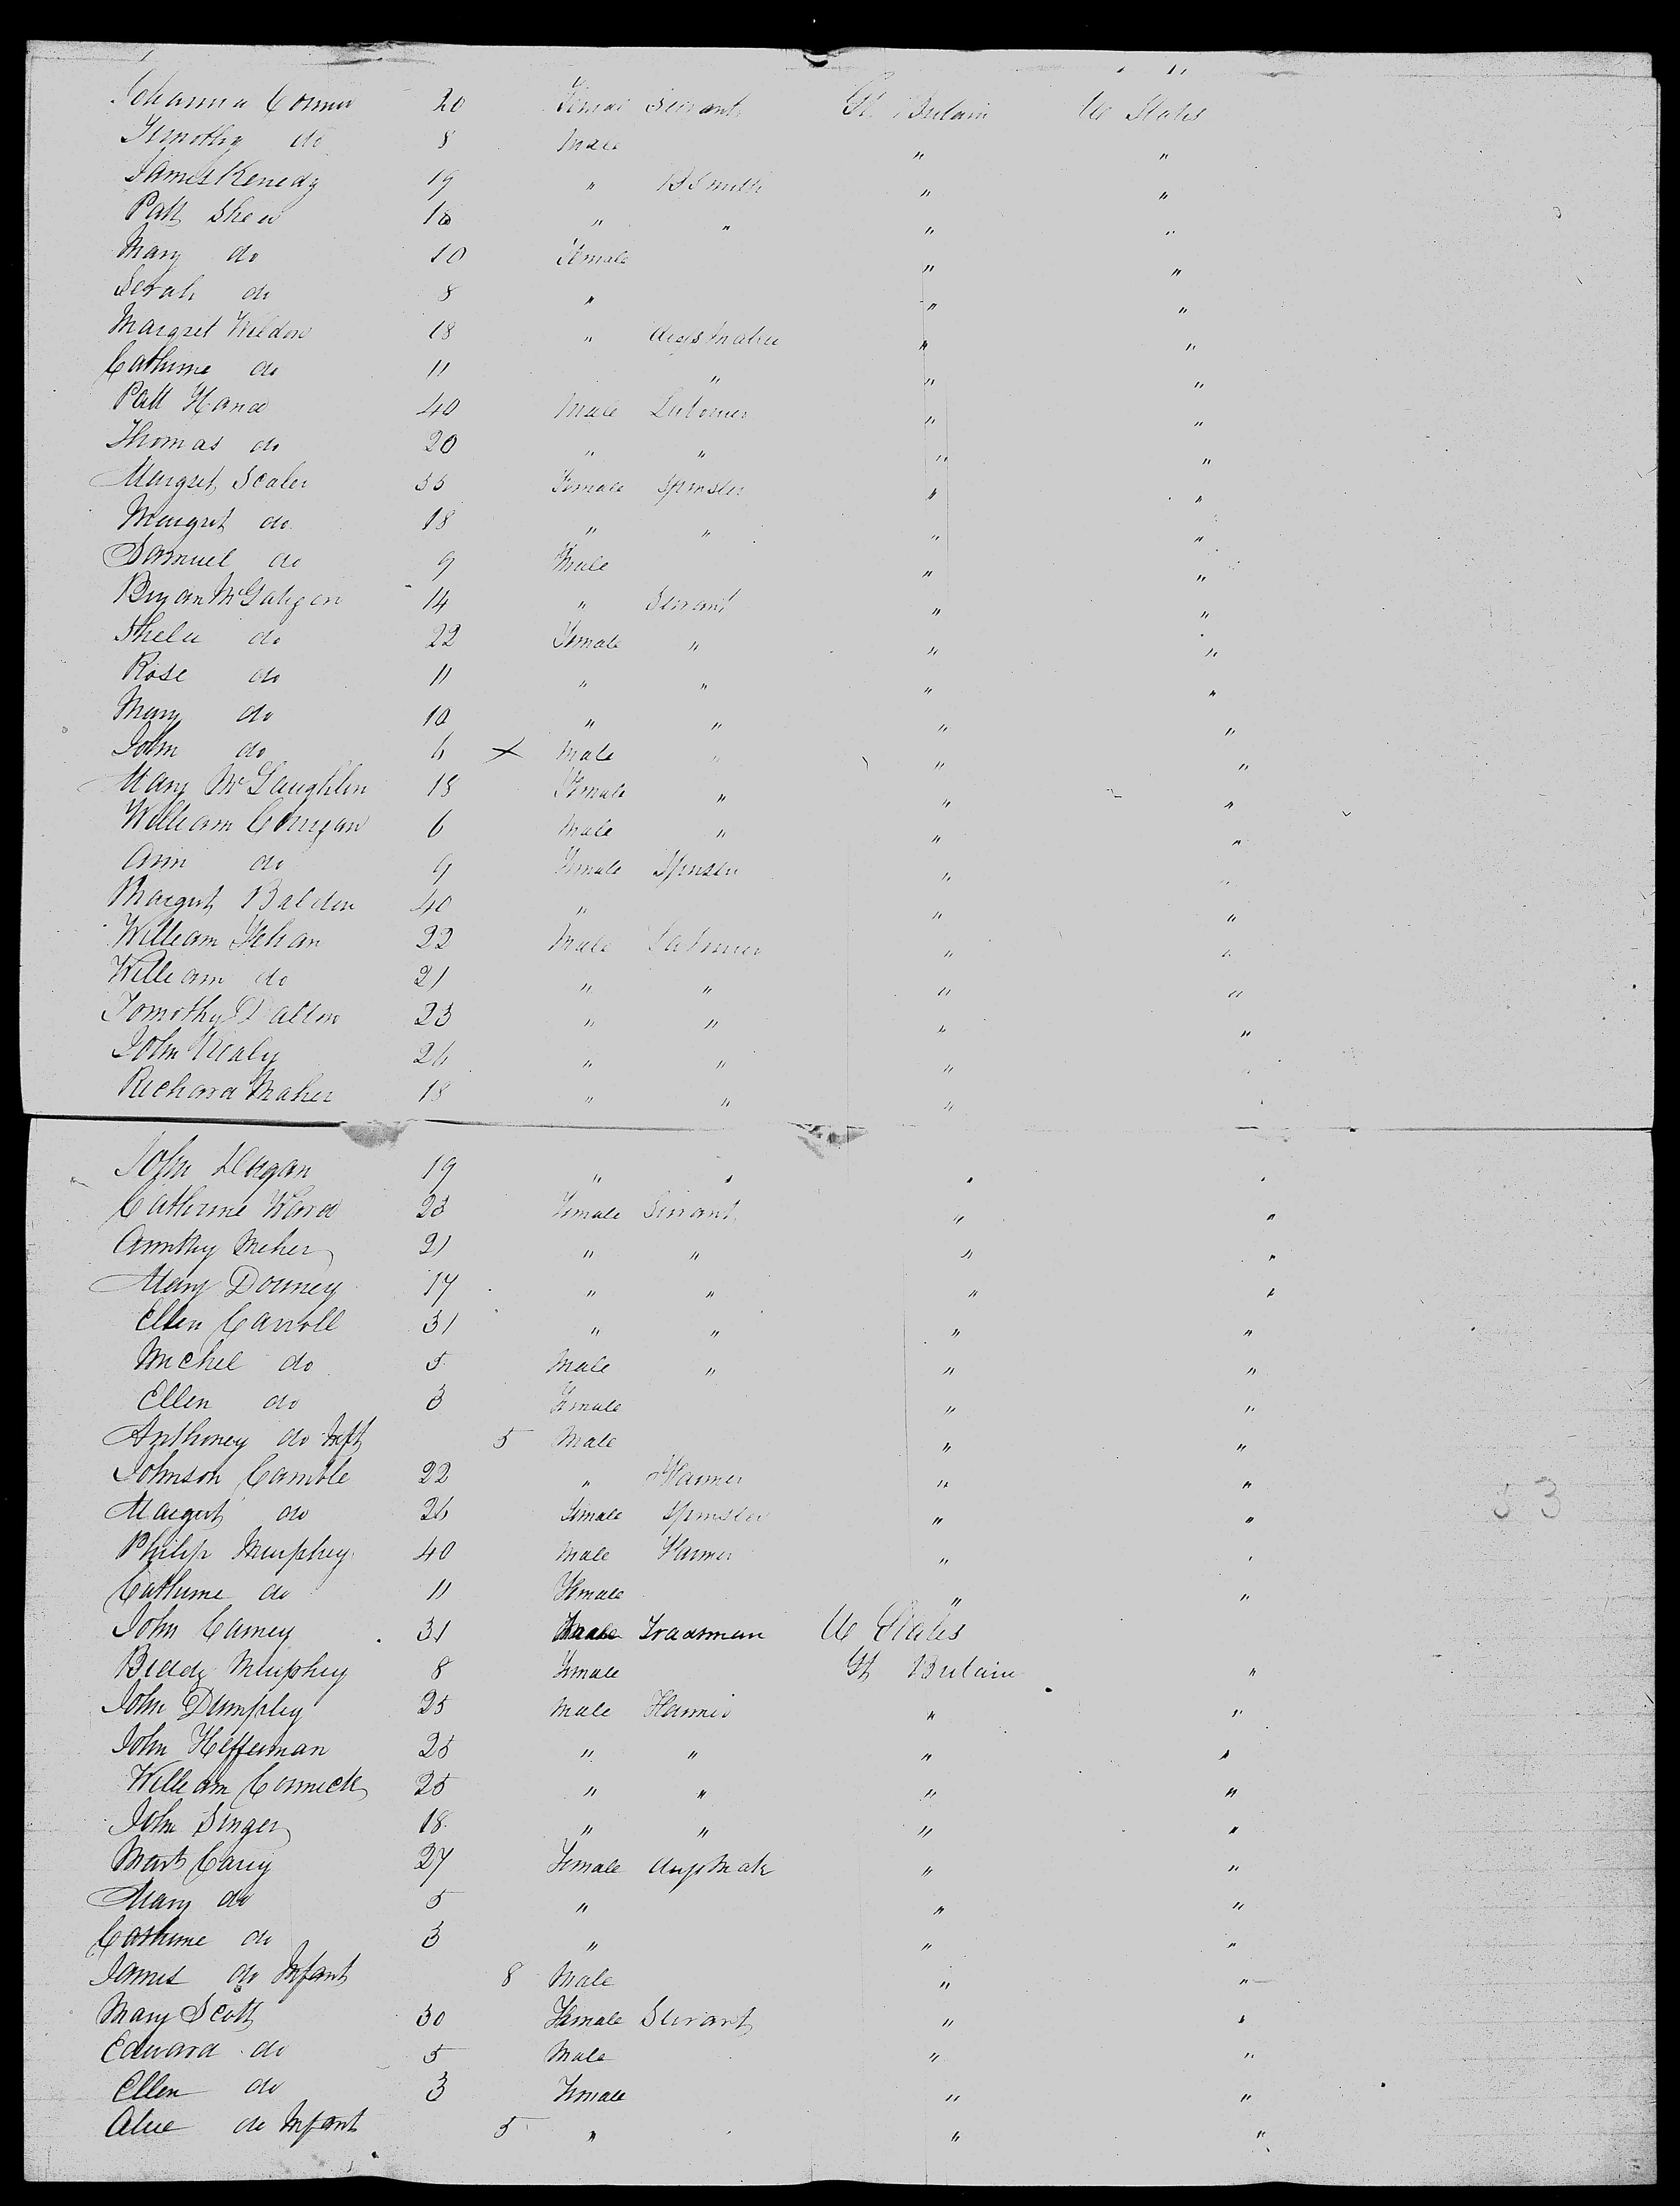 Johanna Conner 20 Femal Servant Gt. Britain U States
Timothy do 8 Male " "
James Kenedy 19 " B Smith " "
Patt Shea 18 " " " "
Mary do 10 Female " "
Serah do 8 " " "
Margret Weldon 18 " " "
Cathrine do 11 " " "
Patt Hand 40 Male Labourer " "
Thomas do 20 " " " "
Margret Scaler 35 Female Spinster " "
Margret do 18 " " " "
Samuel do 9 Male " "
Bryan McGahgan 14 " Servant " "
Shela do 22 Female " " "
Rose do 11 " " " "
Mary do 10 " " " "
John do 6 x Male " " "
Mary McLaughlin 18 Female " " "
William Corrigan 6 Male " " "
Ann do 9 Female Spinster " "
Margret Baldon 40 " " "
William 22 Male Labourer " "
William do 21 " " " "
Tomothy Dalton 23 " " " "
John Healy 26 " " " "
Richard Maher 18 " " " "
John Deagan 19 " " " "
Catherine Ward 23 Female Servant " "
Meher 21 " " " "
Mary Downey 17 " " " "
Ellen Carroll 31 " " " "
Michel do 5 Male " " "
Ellen do 3 Female " "
Anthoney do Inft 5 Male " "
Johnson Camble 22 " Farmer " "
Margret do 26 Female Spinster " "
Philip Murphey 40 Male Farmer " "
Cathrine do 11 Female " "
John Carney 31 Male Tradsman U States
Biddy Murphey 8 Female Gt Britain "
John Dumphey 25 Male Farmer " "
John Heffernan 25 " " " "
William Cormick 25 " " " "
John Singer 18 " " " "
Carey 27 Female " "
Mary do 5 " " "
Cathrine do 3 " " "
James do Infant 8 Male " "
Mary Scott 30 Female Servant " "
Edward do 5 Male " "
Ellen do 3 Female " "
Alice do Infant 5 " " "
53